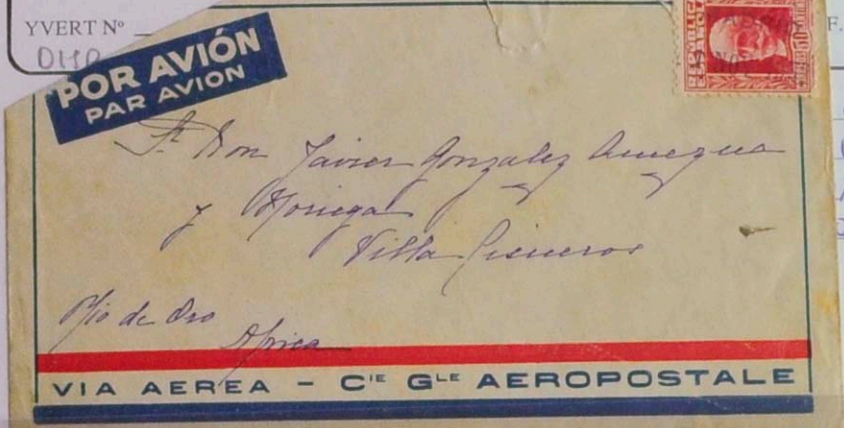 YVERT Nº
F.
POR AVIÓN
PAR AVION
REPÚBLICA
ESPAÑOLA
Sr. Don Javier Gonzalez Amezua
y Noriega
Villa Cisneros
Rio de Oro
Africa
VIA AEREA - CIE GLE AEROPOSTALE